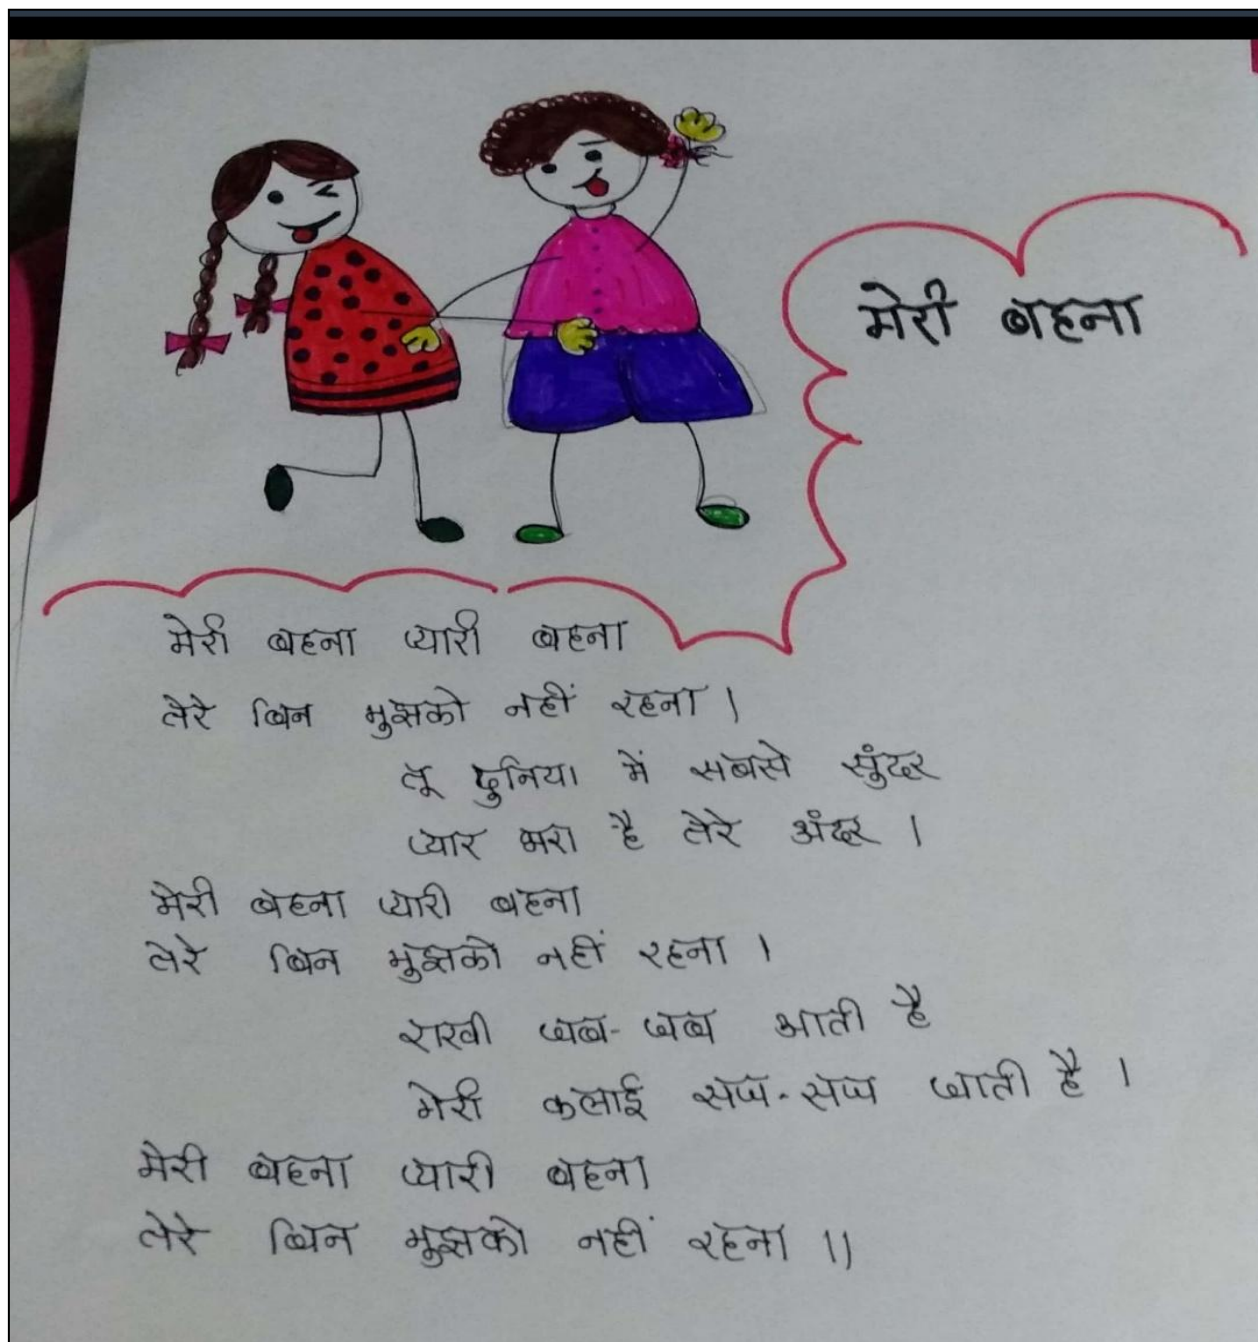 मेरी बहना
मेरी बहना प्यारी बहना
तेरे बिन मुझको नहीं रहना ।
तू दुनिया में सबसे सुंदर
प्यार भरा है तेरे अंदर ।
मेरी बहना प्यारी बहना
तेरे बिन मुझको नहीं रहना ।
राखी जब-जब आती है
मेरी कलाई सज-सज जाती है ।
मेरी बहना प्यारी बहना
तेरे बिन मुझको नहीं रहना ।।